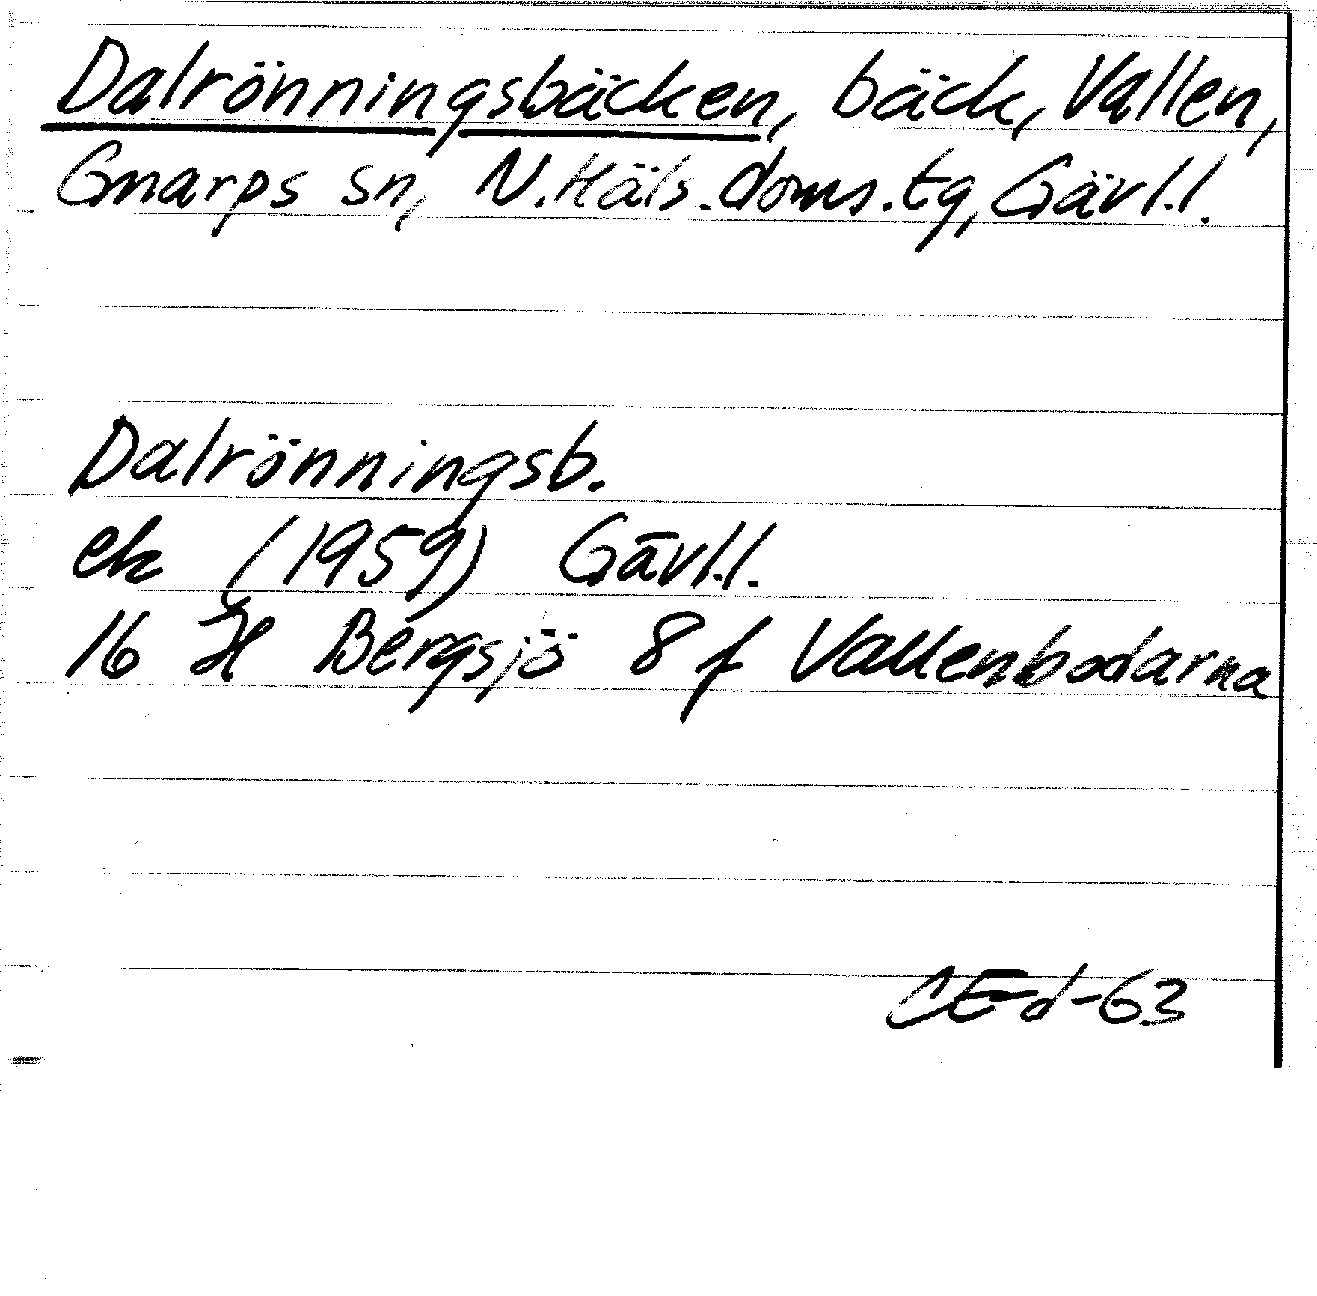 Dalrönningsbäcken, bäck, Vallen,
Gnarps sn, N.Häls.doms.tg, Gävl.l.
Dalrönningsb.
ek (1959) Gävl.l.
16 H Bergsjö 8 f Vallenbodarna
CEd-63